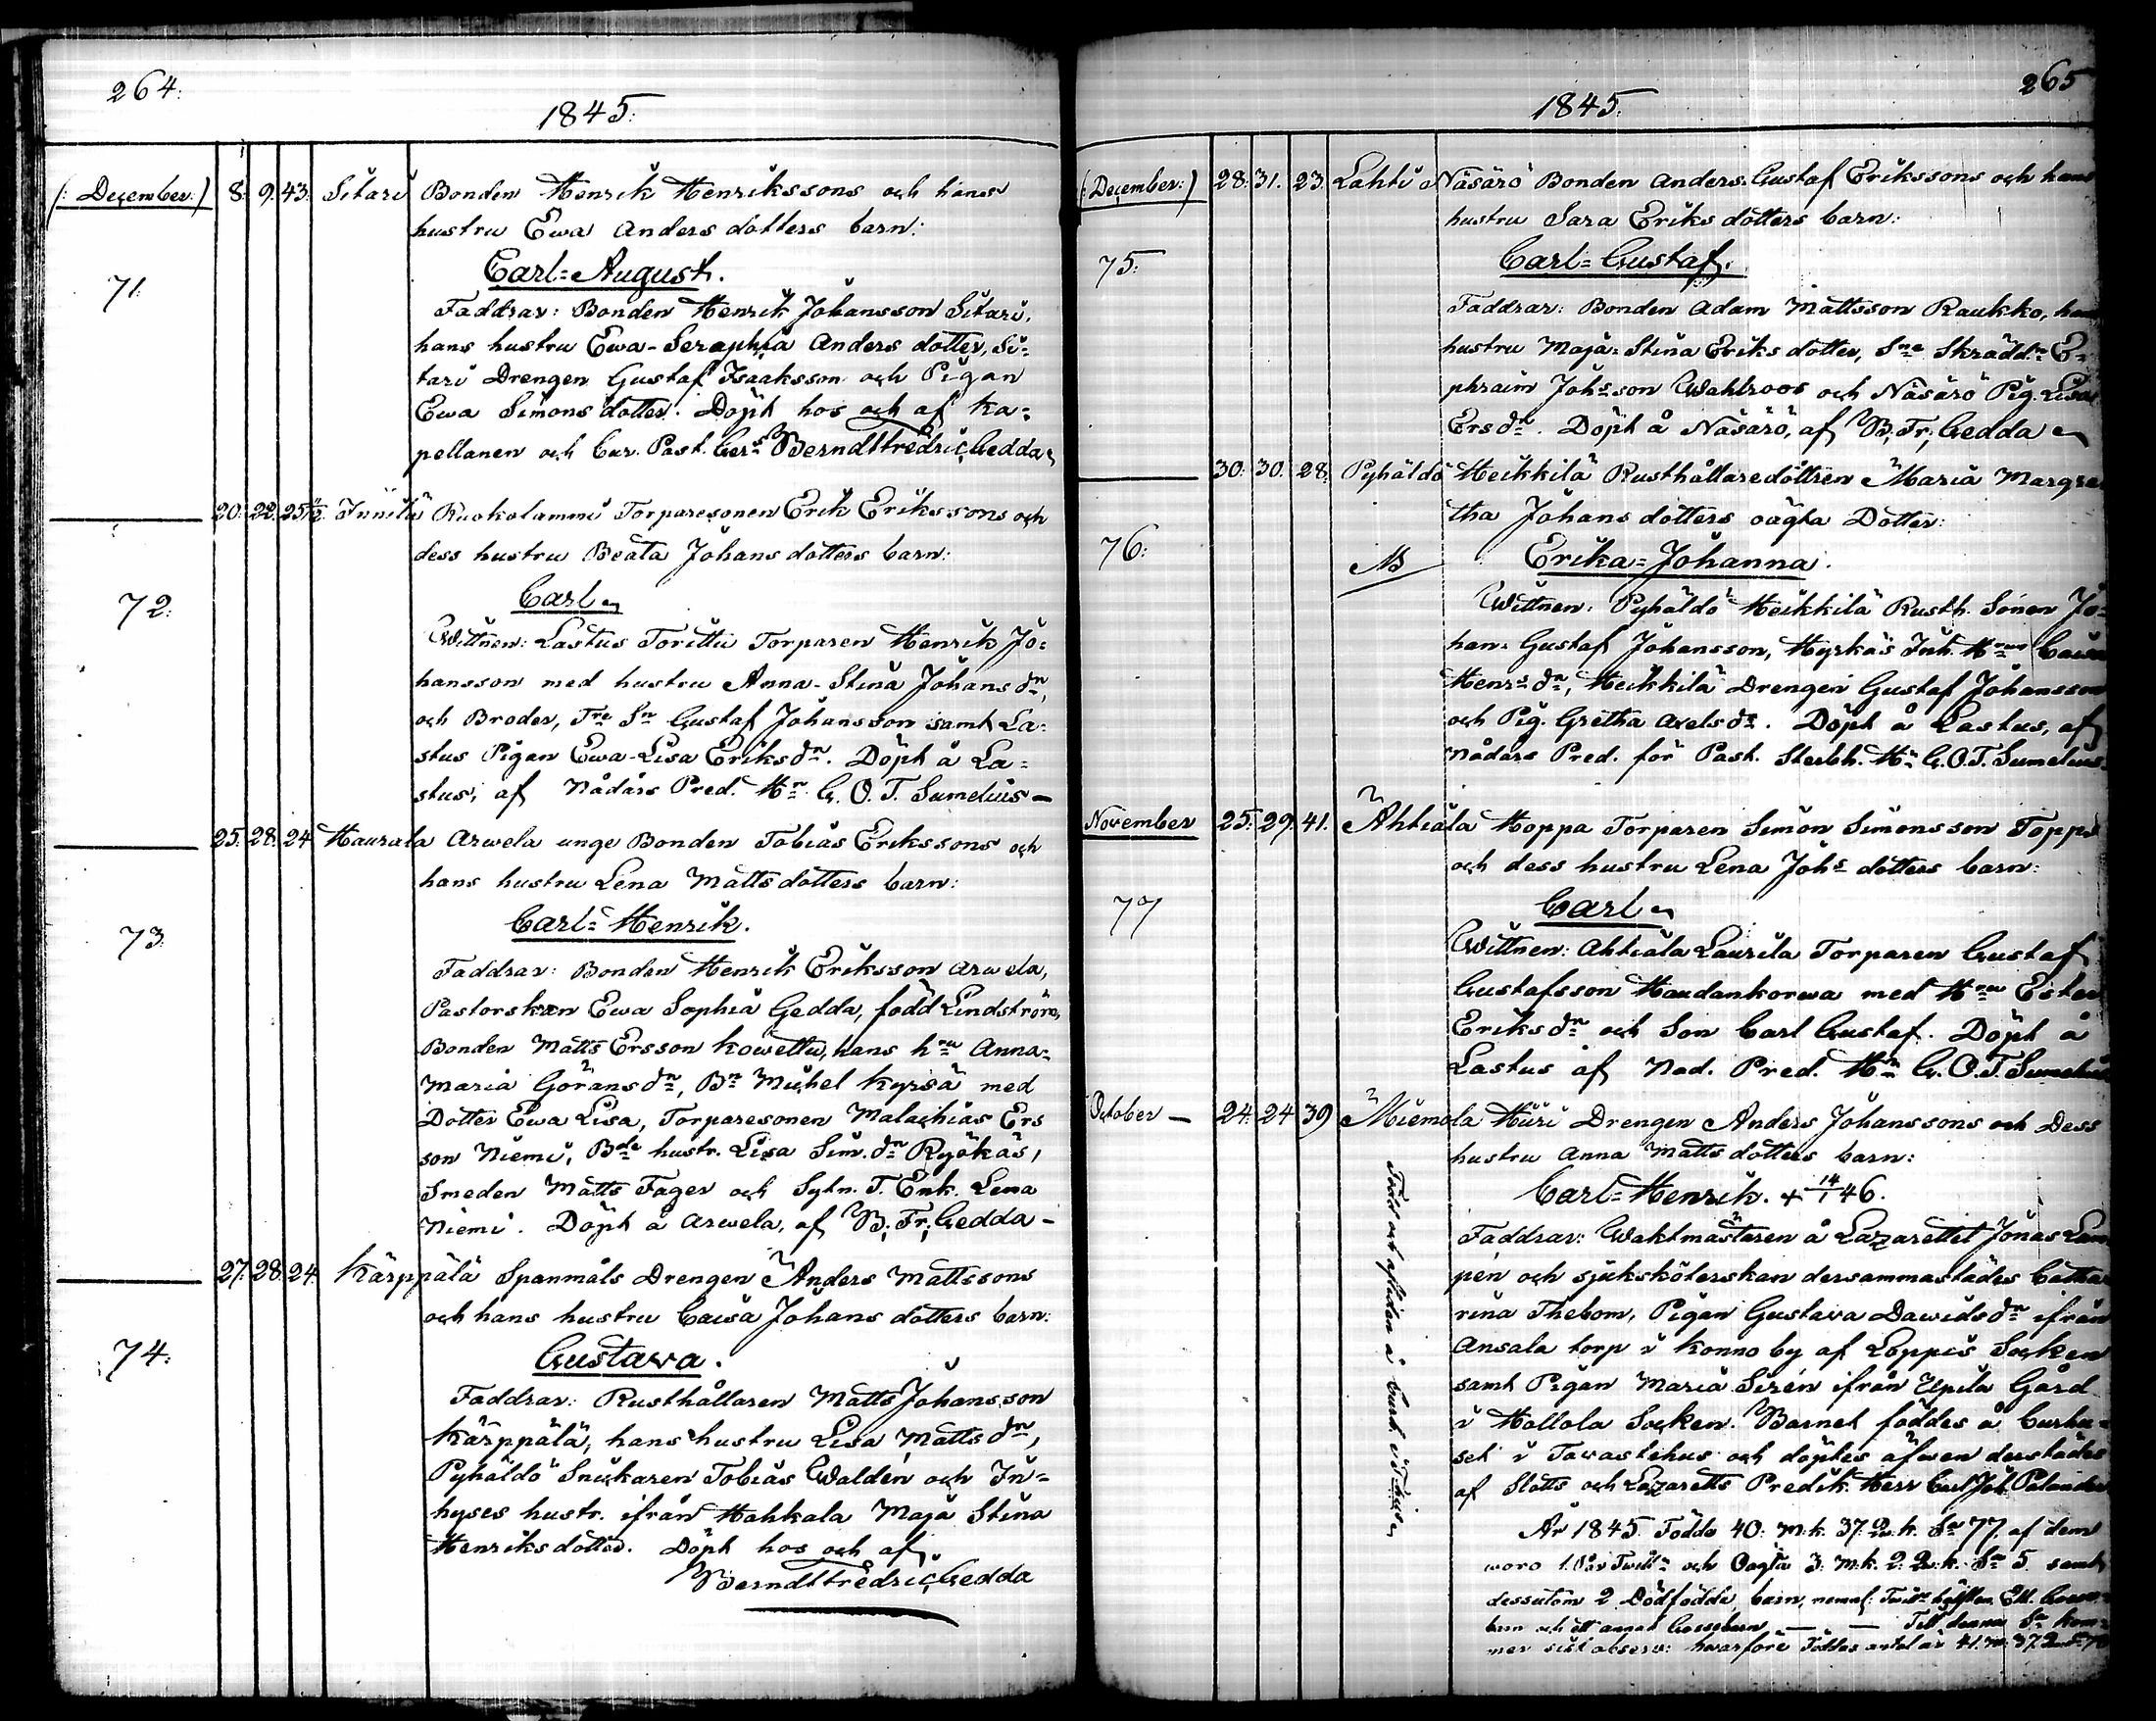 264:
1845:
(: December:) 8. 9. 43. Sitari Bonden Henrik Henrikssons och hans
hustru Ewa Anders dotters barn:
71. Carl=August.
Faddrar: Bonden Henrik Johansson Sitari,
hans hustru Ewa-Seraphia Anders dotter, Si=
tari Drengen Gustaf Isaaksson och Pigan
Ewa Simons dotter. Döpt hos och af Ka=
pellanen och Cur. Past. Berndt Fredric Gedda
20. 22. 25 Innilä Ruokolammi Torparesonen Erik Erikssons och
dess hustru Beata Johans dotters barn:
72: Carl
Wittnen: Lastus Torittu Torparen Henrik Jo=
hansson med hustru Anna-Stina Johans dr,
och Broder, Tre Sn Gustaf Johansson samt La=
stus Pigan Ewa-Lisa Eriks dr. Döpt å La=
stus, af Nådårs Pred. Hr G. O. T. Sumelius —
25. 28. 24 Haurala Arwela unge Bonden Tobias Erikssons och
hans hustru Lena Matts dotters barn:
73. Carl=Henrik.
Faddrar: Bonden Henrik Eriksson Arwela,
Pastorskan Ewa Sophia Gedda, född Lindström,
Bonden Matts Ersson Kowettu, hans hru Anna=
Maria Görans dr, Bn Michel Kyrsä med
Dotter Ewa Lisa, Torparesonen Malachias Ers
son Niemi, Bde hustr. Lisa Sim. dr Ryökäs,
Smeden Matts Fager och Sytn. T. Enk. Lena
Niemi. Döpt å Arwela, af B. Fr. Gedda —
27. 28. 24. Kärppälä Spanmåls Drengen Anders Mattssons
och hans hustru Caisa Johans dotters barn:
74: Gustava.
Faddrar: Rusthållaren Matts Johansson
Kärppälä, hans hustru Lisa Matts dr,
Pyhäldö Snickaren Tobias Waldén och In=
hyses hustr. ifrån Hahkala Maja Stina
Henriks dotter. Döpt hos och af
Berndt Fredric Gedda
265
1845.
(: December:) 28. 31. 23. Lahti Näsärö Bonden Anders Gustaf Erikssons och hans
hustru Sara Eriks dotters barn:
75: Carl=Gustaf.
Faddrar: Bonden Adam Mattsson Raukko, hans
hustru Maja=Stina Eriks dotter, Sne Skrädd. E=
phraim Johsson Wahlroos och Näsärö Pig. Lisa
Ers dr. Döpt å Näsärö, af B. Fr. Gedda
30. 30. 28. Pyhäldö Heikkilä Rusthållaredottren Maria Margre
tha Johans dotters oägta Dotter:
76: NB Erika=Johanna.
Wittnen: Pyhäldö Heikkilä Rusth. Sonen Jo=
han Gustaf Johansson, Hyrkäs Inh. Hru Caisa
Henrs dr, Heikkilä Drengen Gustaf Johansson
och Pig. Gretha Axels dr. Döpt å Lastus, af
Nådårs Pred. för Past. Sterbh. Hr G. O. T. Sumelius.
November 25. 29. 41. Ahtiala Hoppa Torparen Simon Simonsson Toppo
och dess hustru Lena Johs dotters barn:
77 Carl
Wittnen: Ahtiala Laurila Torparen Gustaf
Gustafsson Haudankorwa med Hru Ester
Eriks dr och Son Carl Gustaf. Döpt å
Lastus af Nåd. Pred. Hr G. O. T. Sumelius
October — 24. 24 39 Miemola Hüri Drengen Anders Johanssons och Dess
hustru Anna Matts dotters barn:
Carl=Henrik. + 14/1 46.
Född och afliden å Curh. i T:hus
Faddrar: Waktmästaren å Lazarettet Jonas Lam
pén och sjuksköterskan dersammastädes Catha
rina Thebom, Pigan Gustava Dawids dr ifrån
Ansala torp i Konno by af Loppis Socken
samt Pigan Maria Sirén ifrån Upila Gård
i Hollola Socken. Barnet föddes å Curhu=
set i Tavastehus och döptes äfwen derstädes
af Slotts och Lazaretts Predik. Herr Carl Joh. Palander
År 1845. Födde 40: m.k. 37. Q.k. Sa 77. af dem
woro 1. Par Twill. och Oägta 3. m.k. 2. Q.k. Sa 5. samt
dessutom 2 Dödfödda barn, neml. Twill. hälften, Ett
barn och ett annat Gossebarn — — Till denna Sa kom=
mer sist observ: hwarföre Föddas antal är 41. m. 37. Q. 78